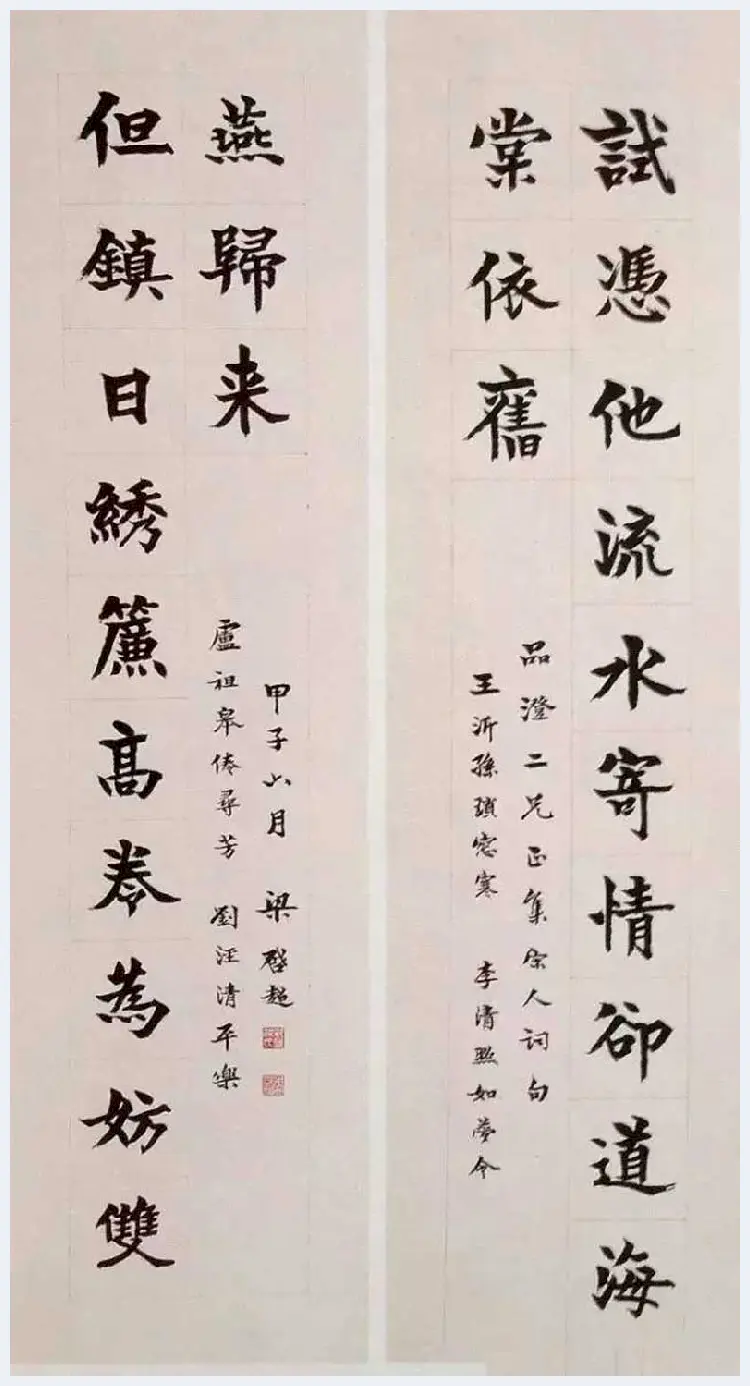 試憑他流水寄情卻道海
棠依舊
品澄二兄正集宋人詞句
王沂孫瑣窓寒 李清照如夢令
但鎮日綉簾高卷為妨雙
燕歸来
盧祖皋倦尋芳 劉汪清平樂
甲子六月 梁啓超